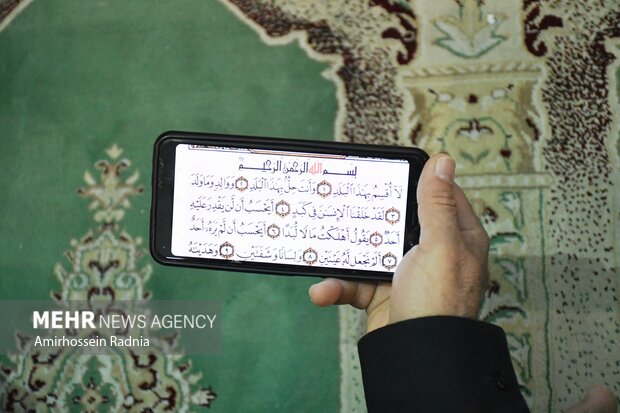 بِسْمِ اللَّهِ الرَّحْمَٰنِ الرَّحِيمِ
لَا أُقْسِمُ بِهَٰذَا الْبَلَدِ ١ وَأَنتَ حِلٌّ بِهَٰذَا الْبَلَدِ ٢ وَوَالِدٍ وَمَا وَلَدَ
٣ لَقَدْ خَلَقْنَا الْإِنسَانَ فِي كَبَدٍ ٤ أَيَحْسَبُ أَن لَّن يَقْدِرَ عَلَيْهِ
أَحَدٌ ٥ يَقُولُ أَهْلَكْتُ مَالًا لُّبَدًا ٦ أَيَحْسَبُ أَن لَّمْ يَرَهُ أَحَدٌ
٧ أَلَمْ نَجْعَل لَّهُ عَيْنَيْنِ ٨ وَلِسَانًا وَشَفَتَيْنِ ٩ وَهَدَيْنَاهُ
MEHR NEWS AGENCY
Amirhossein Radnia